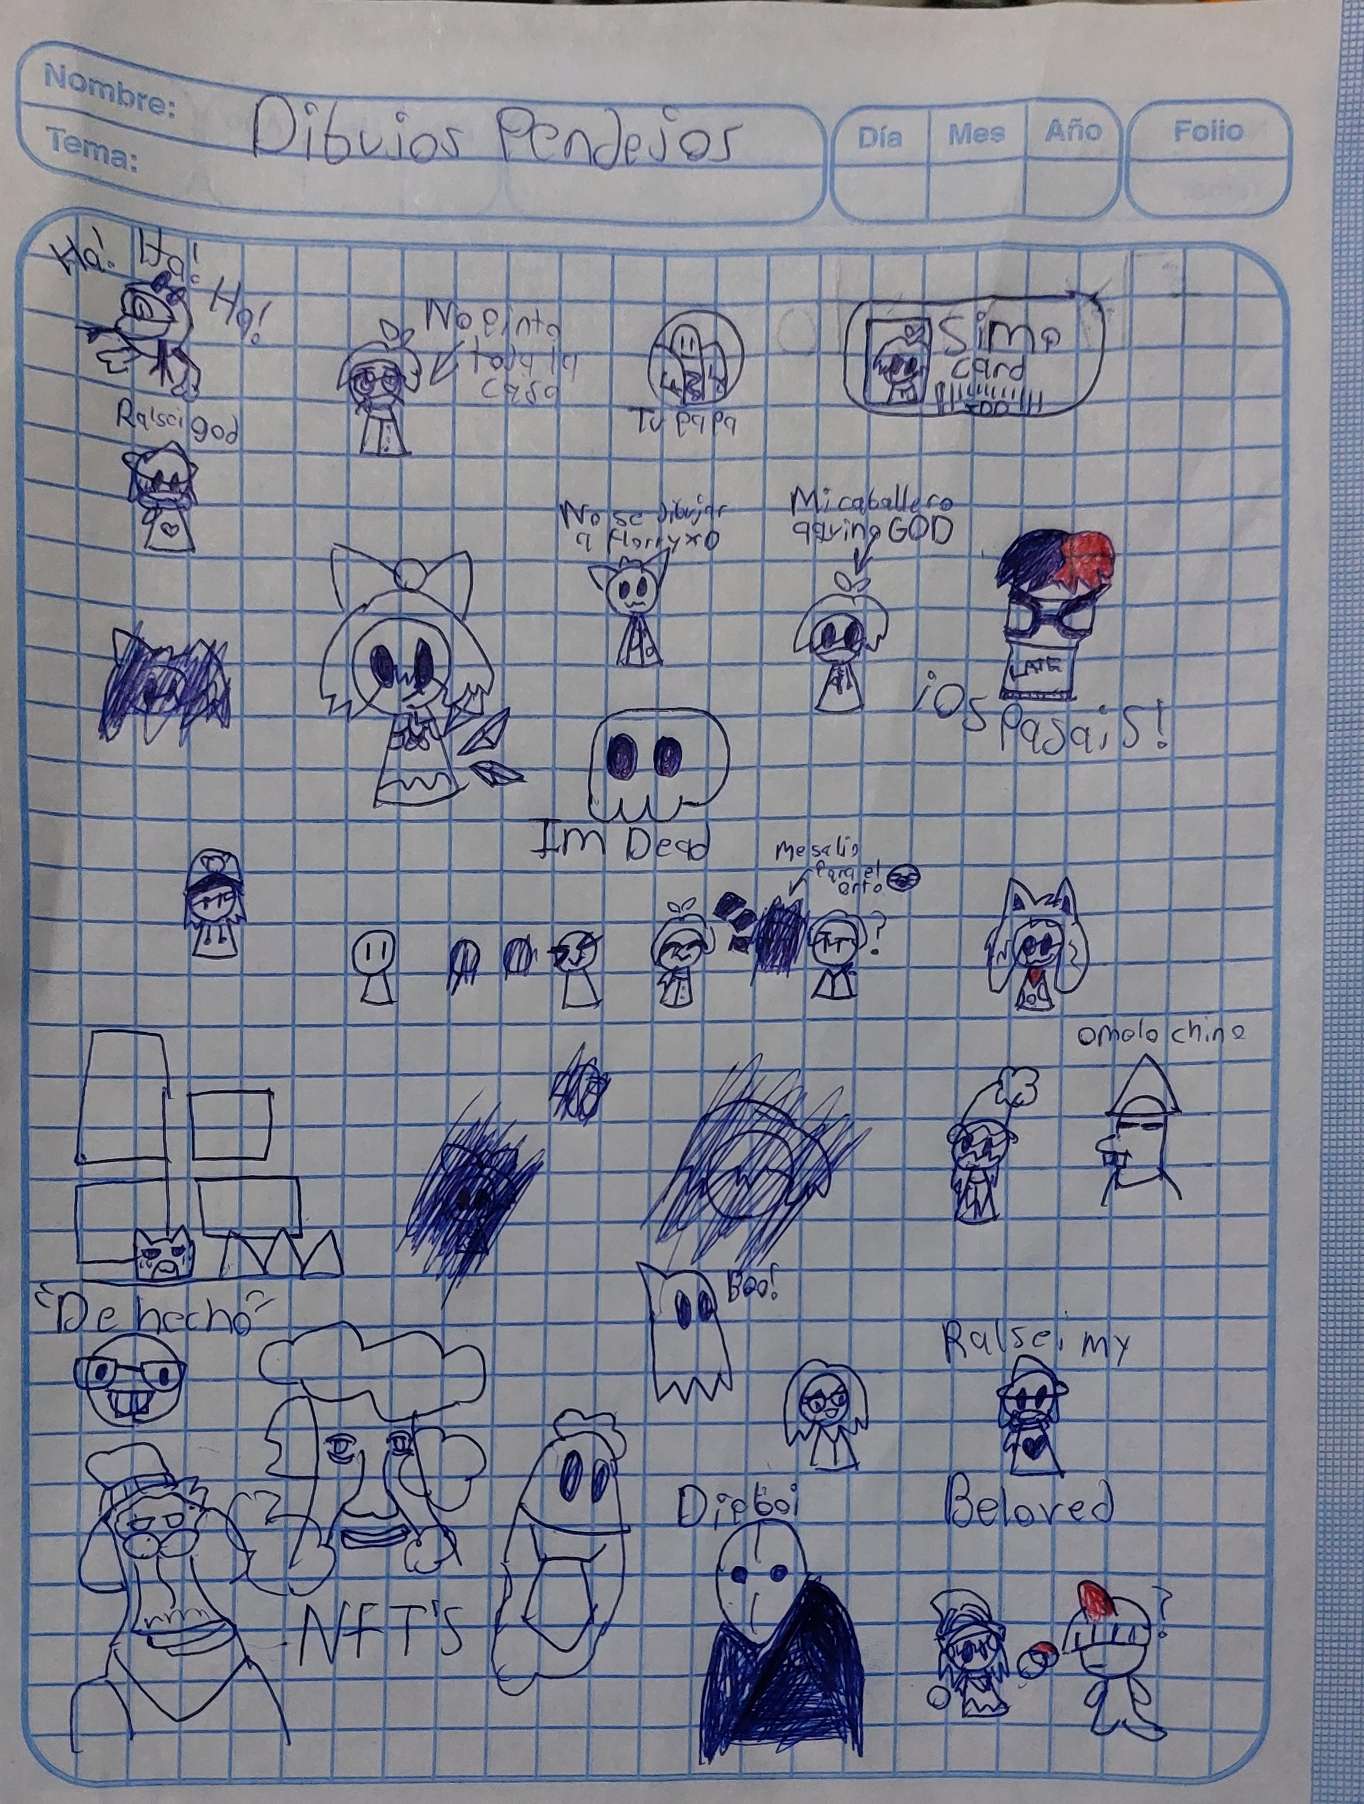 Nombre:
Dibujos Pendejos
Tema:
Día
Mes
Año
Folio
Ha! Ha!
Ha!
No pinto
toda la
casa
Tu papa
Simp
card
Ralsei god
No se dibujar
a
Mi caballero
GOD
LATE
¡Os
Pasais!
Im Dead
me salio
para el
orto
?
omolo chino
"De hecho"
Boo!
Ralsei my
Beloved
NFT'S
?